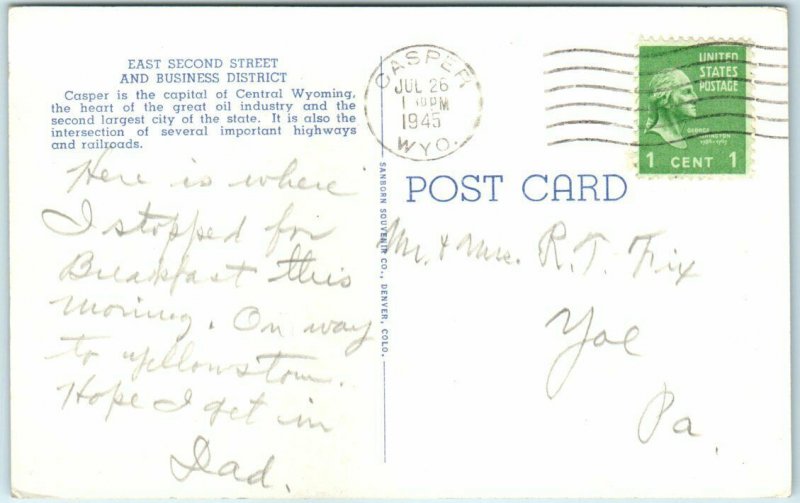 EAST SECOND STREET
AND BUSINESS DISTRICT
Casper is the capital of Central Wyoming,
the heart of the great oil industry and the
second largest city of the state. It is also the
intersection of several important highways
and railroads.
Here is where
I stopped for
Breakfast this
Morning. On way
to yellowstone.
Hope I get in
Dad.
SANBORN SOUVENIR CO., DENVER, COLO.
CASPER
JUL 26
PM
1945
WYO.
UNITED
STATES
POSTAGE
GEORGE
WASHINGTON
1 CENT 1
POST CARD
Mr. & Mrs. R. T. Fix
Yoe
Pa.